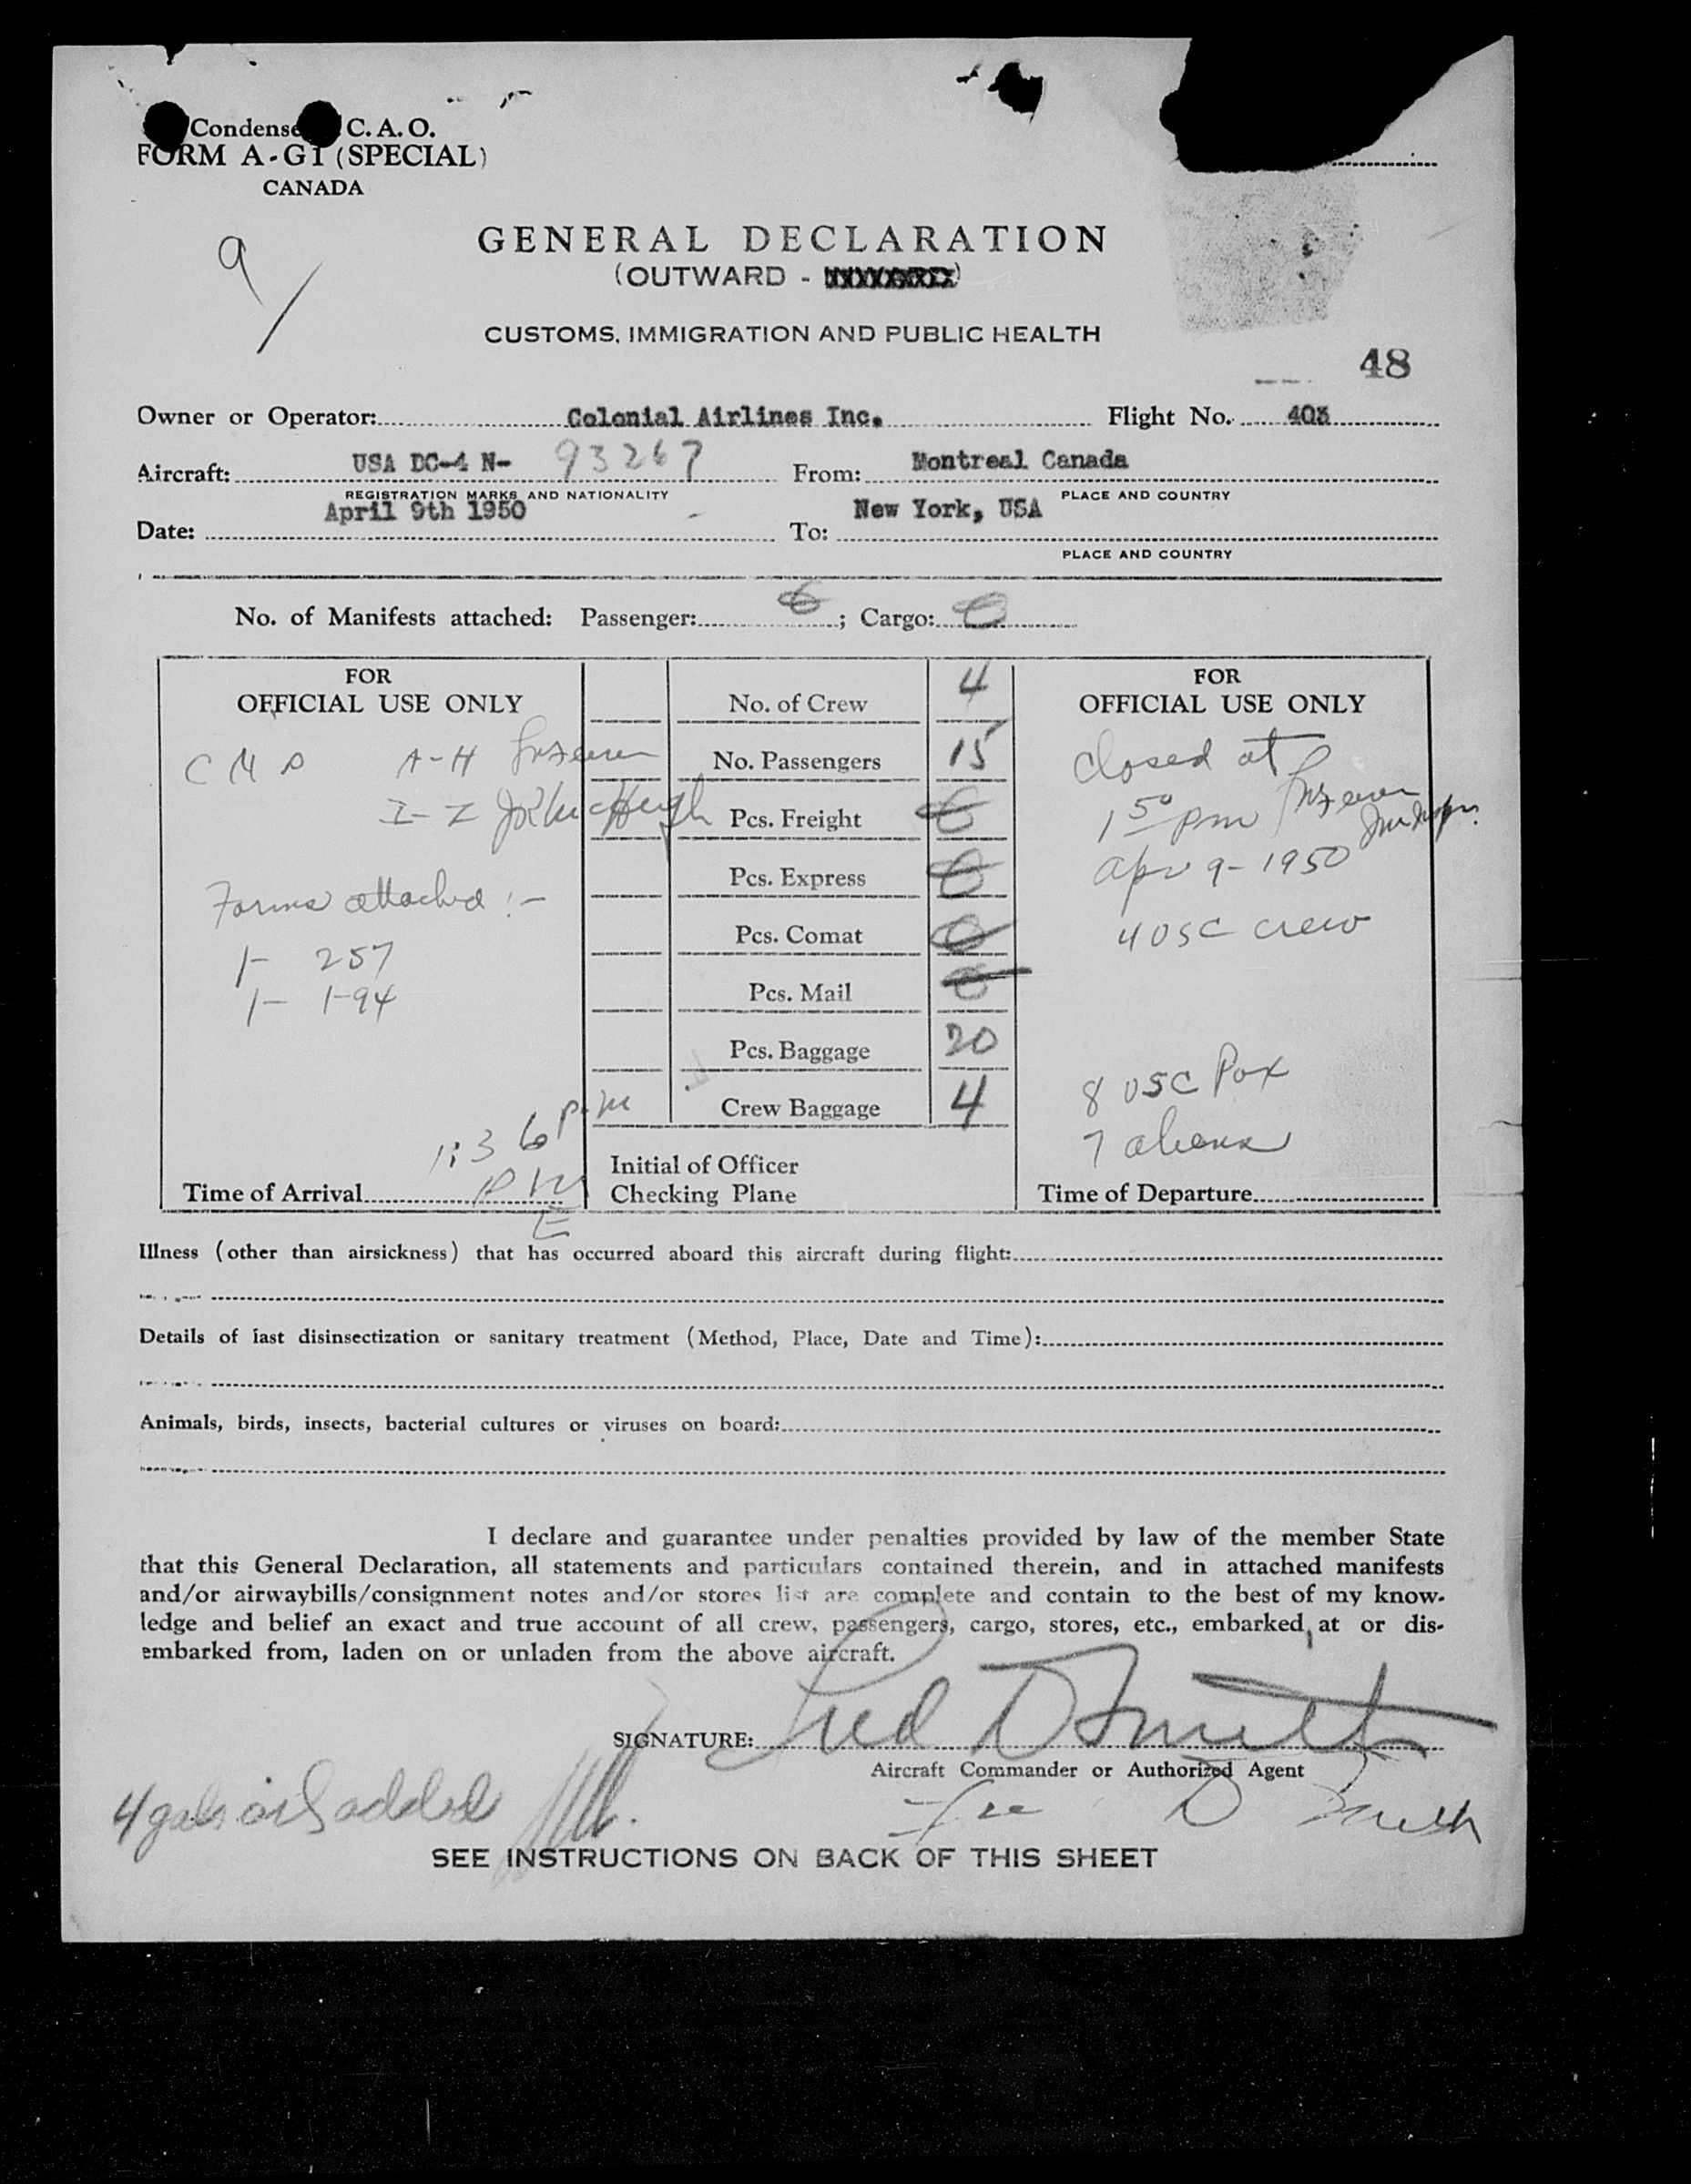 Condense C. A. O.
FORM A-G1 (SPECIAL)
CANADA
9/
GENERAL DECLARATION
(OUTWARD - XXXXXXX)
CUSTOMS, IMMIGRATION AND PUBLIC HEALTH
48
Owner or Operator: Colonial Airlines Inc. Flight No. 403
Aircraft: USA DC-4 N- 93267 From: Montreal Canada
REGISTRATION MARKS AND NATIONALITY PLACE AND COUNTRY
Date: April 9th 1950 To: New York, USA
PLACE AND COUNTRY
No. of Manifests attached: Passenger: 0 ; Cargo: 0
FOR
OFFICIAL USE ONLY
A-H
I-Z
Forms attached :-
1- 257
1- 1-94
1:36 P.M
Time of Arrival
No. of Crew 4
No. Passengers 15
Pcs. Freight 0
Pcs. Express 0
Pcs. Comat 0
Pcs. Mail 0
Pcs. Baggage 20
Crew Baggage 4
Initial of Officer
Checking Plane
FOR
OFFICIAL USE ONLY
Closed at
1 50 pm
Apr 9- 1950
4 USC crew
8 USC Pax
7 aliens
Time of Departure
Illness (other than airsickness) that has occurred aboard this aircraft during flight:
Details of last disinsectization or sanitary treatment (Method, Place, Date and Time):
Animals, birds, insects, bacterial cultures or viruses on board:
I declare and guarantee under penalties provided by law of the member State
that this General Declaration, all statements and particulars contained therein, and in attached manifests
and/or airwaybills/consignment notes and/or stores list are complete and contain to the best of my know-
ledge and belief an exact and true account of all crew, passengers, cargo, stores, etc., embarked at or dis-
embarked from, laden on or unladen from the above aircraft.
SIGNATURE: Fred D Smith
Aircraft Commander or Authorized Agent
D Smith
4 gals oil added
SEE INSTRUCTIONS ON BACK OF THIS SHEET